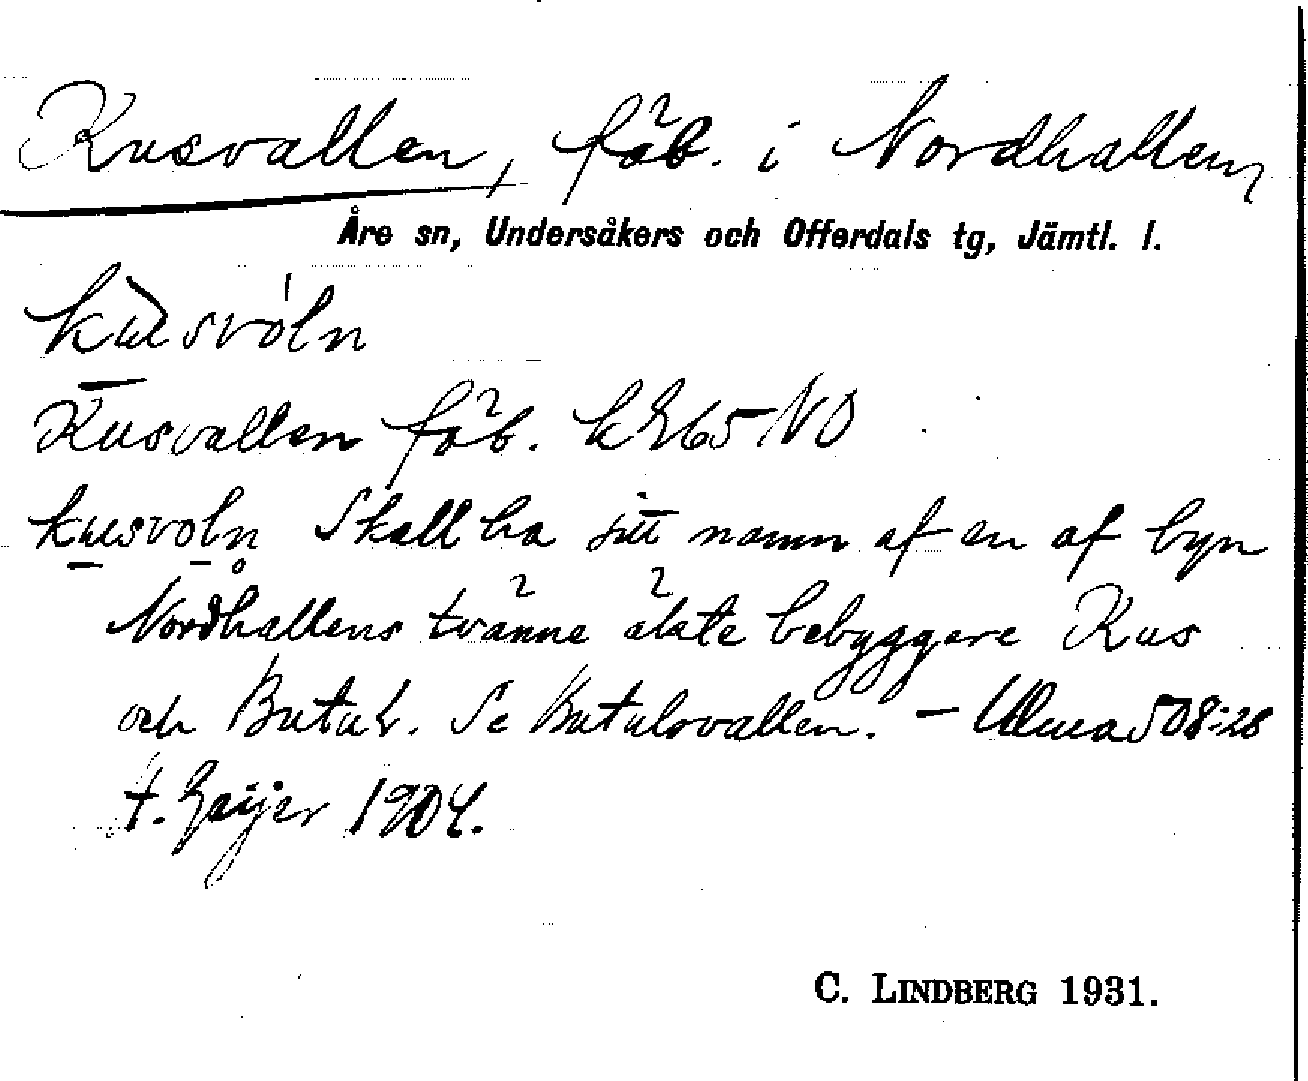 Kusvallen, fäb. i Nordhallen,
Åre sn, Undersåkers och Offerdals tg, Jämtl. l.
kusvoln
Kusvallen fäb. kE65 NO
kusvoln Skall ha sitt namn af en af byn
Nordhallens tvänne äldste bebyggare Kus
och Butul. Se Butulsvallen. – Ulma 508:28
H. Geijer 1904.
C. LINDBERG 1931.